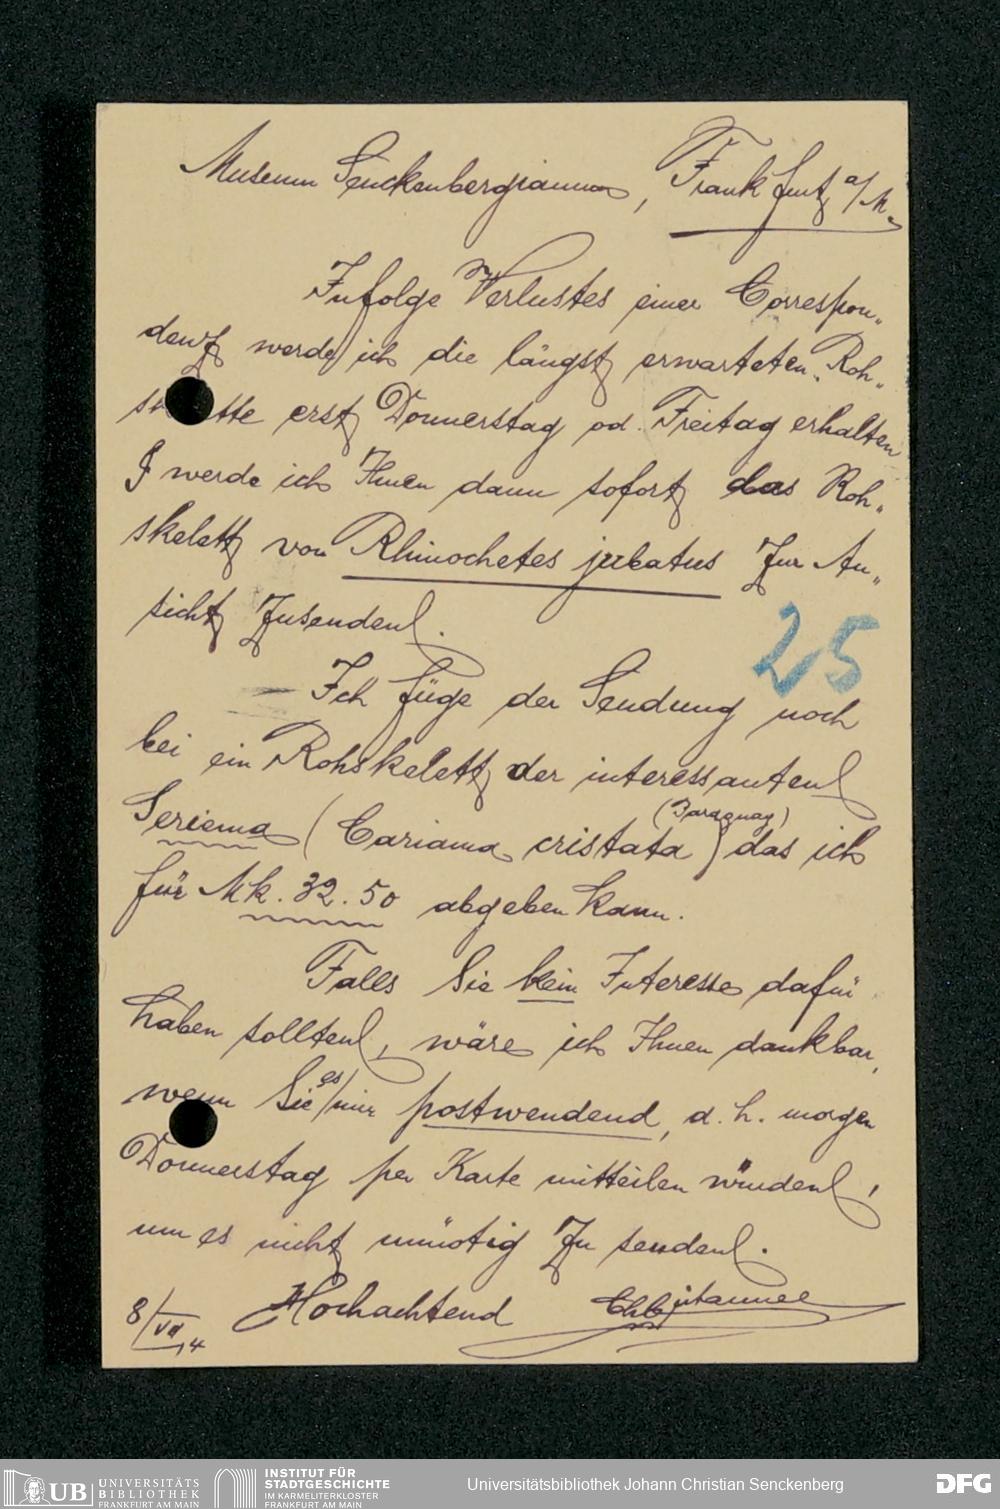 Museum Senckenbergianum, Frankfurt a/M.
Infolge Verlustes einer Correspon„
denz werde ich die längst erwarteten „Roh„
sk tte erst Donnerstag od. Freitag erhalten
& werde ich Ihnen dann sofort das Roh„
skelett von Rhinochetes jubatus zur An„
sicht zusenden.
25
Ich füge der Sendung noch
bei ein Rohskelett der interessanten
Seriema (Cariama cristata) das ich
(Paraguay)
für Mk. 32.50 abgeben kann.
Falls Sie kein Interesse dafür
haben sollten, wäre ich Ihnen dankbar,
wenn Sie es mir postwendend, d. h. morgen
Donnerstag per Karte mitteilen würden,
um es nicht unnötig zu senden.
Hochachtend
8/VII 14
UB UNIVERSITÄTS
BIBLIOTHEK
FRANKFURT AM MAIN
INSTITUT FÜR
STADTGESCHICHTE
IM KARMELITERKLOSTER
FRANKFURT AM MAIN
Universitätsbibliothek Johann Christian Senckenberg
DFG